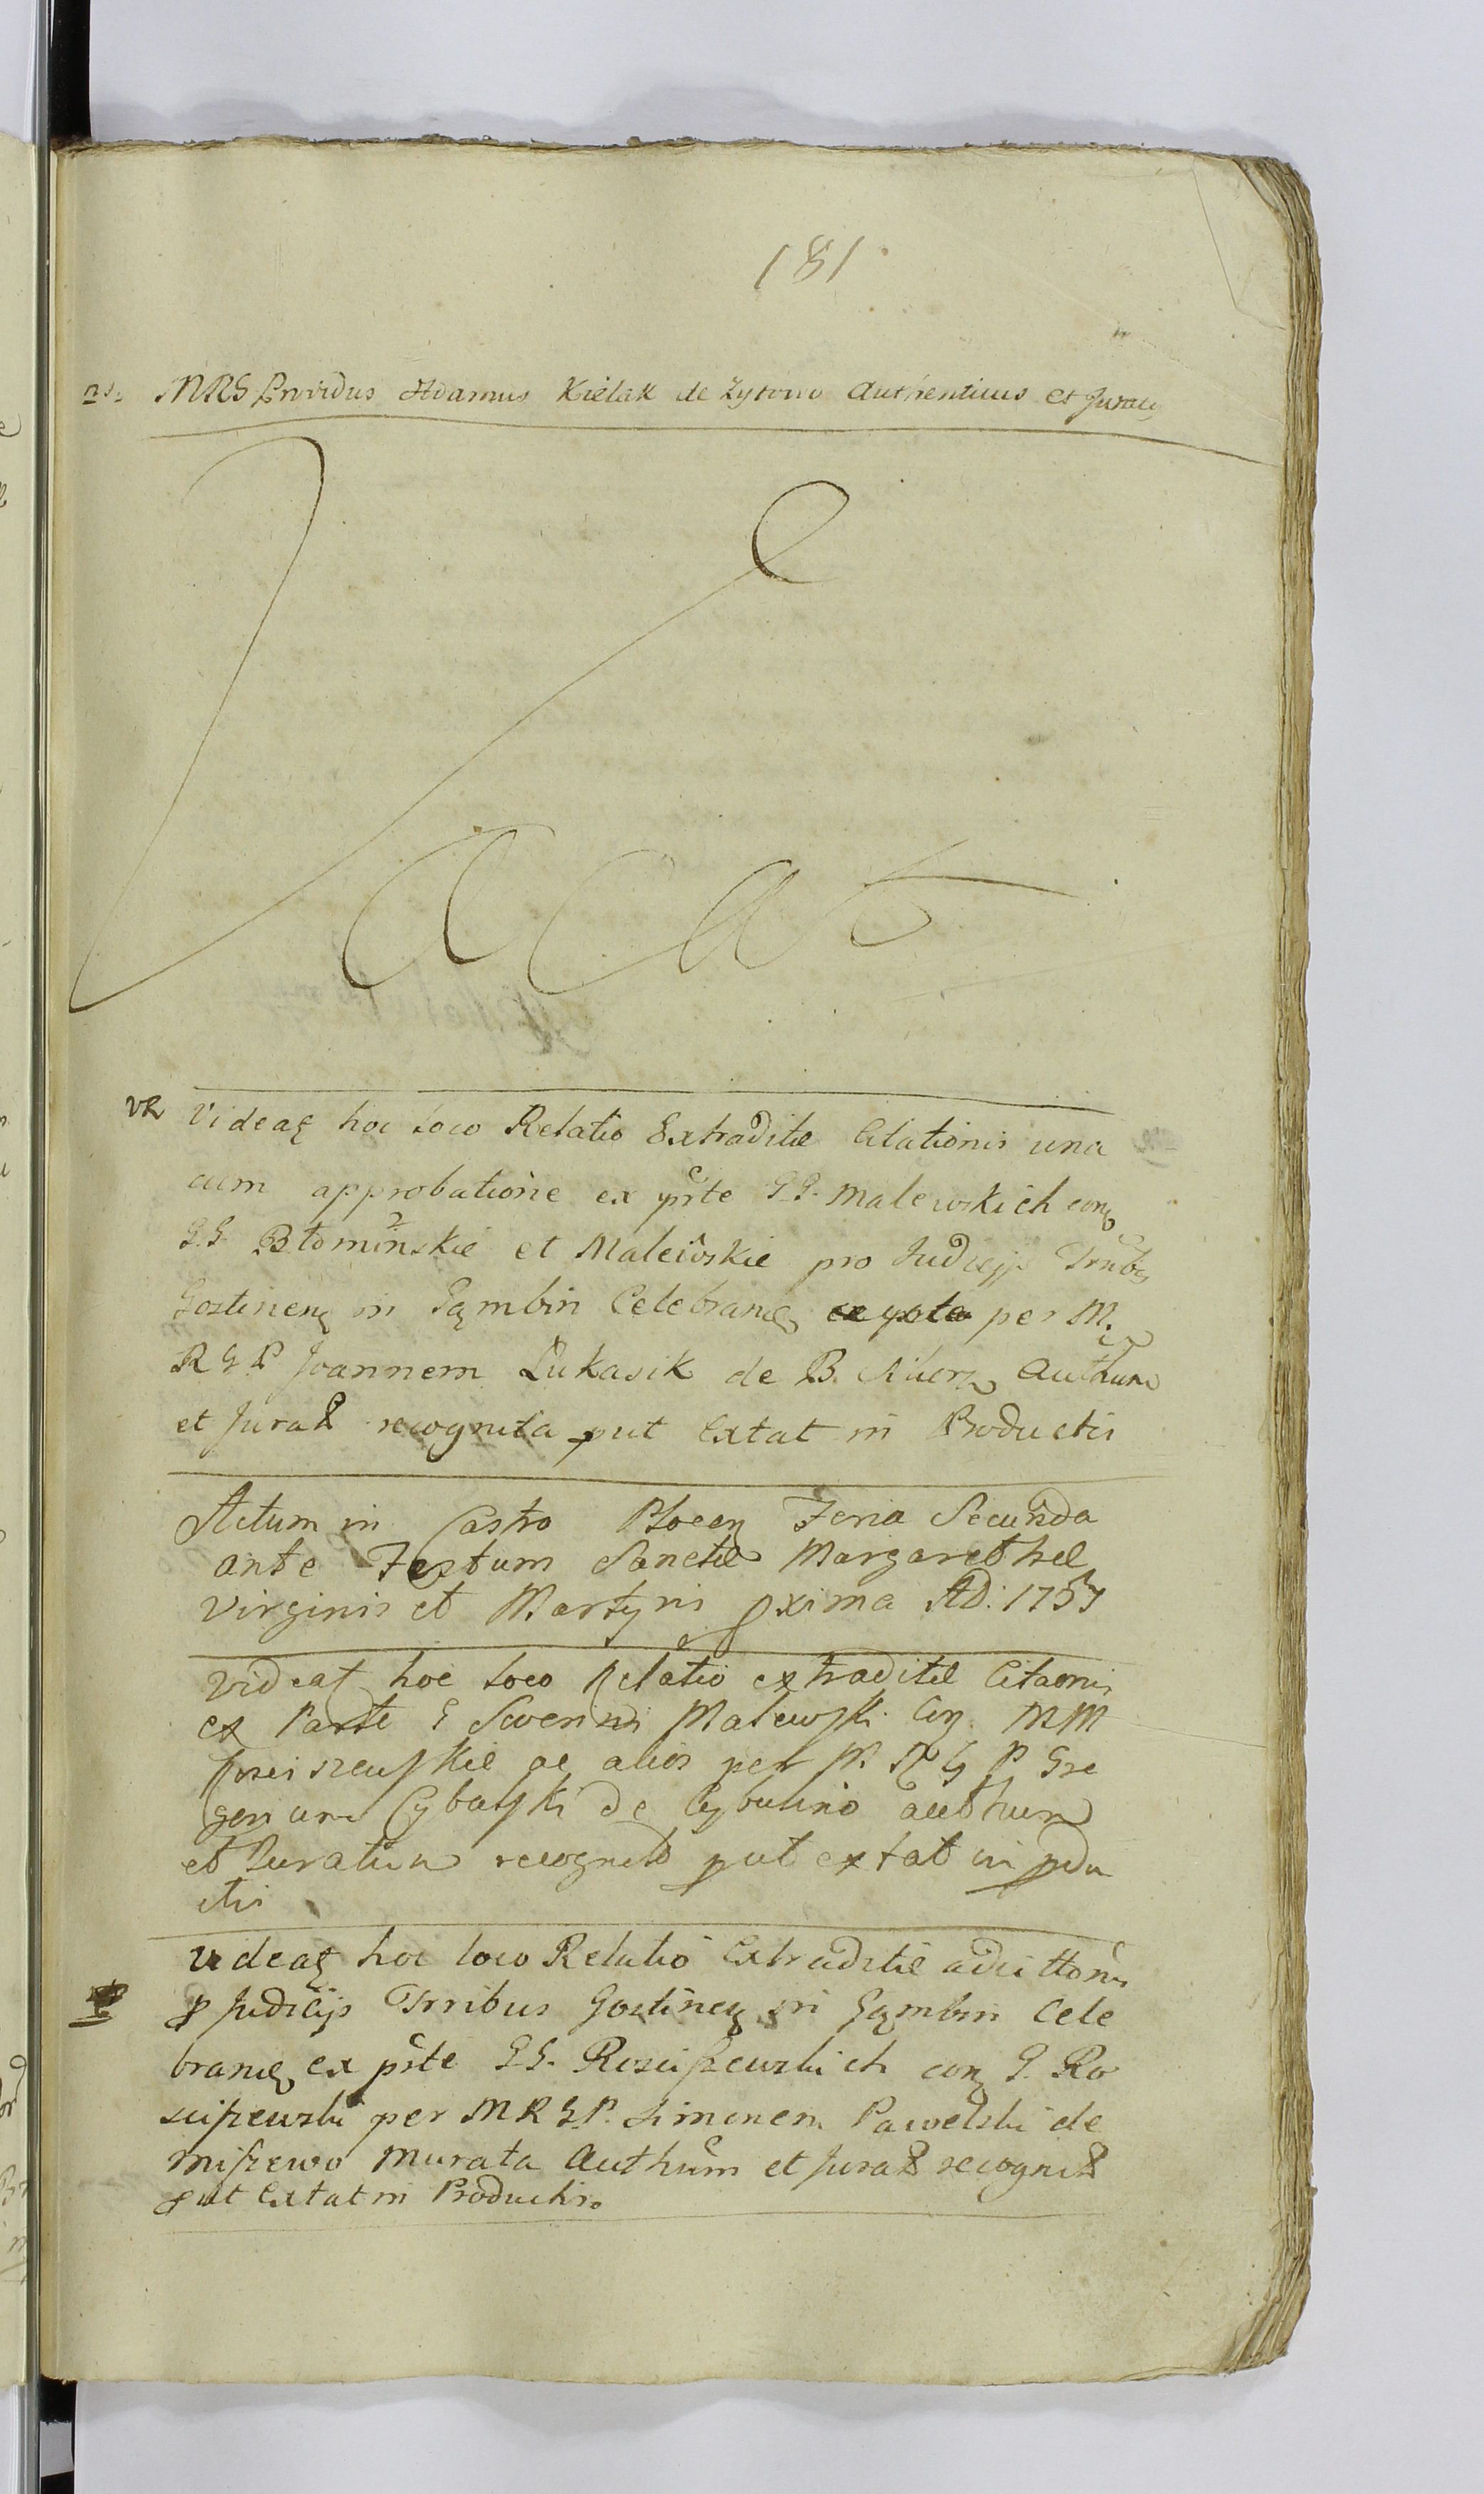 181
MRS Providus Adamus Kielak de Zytowo Authenticus et Jurat9
Vacat
VR Videaꝫ hoc loco Relatio Extraditæ Citationis una
cum approbatione ex pñte GG. Malewskich conꝫ
GG Błominskie et Malewskie pro Judicijs Trrib9
Gostinenꝫ in Gąmbin Celebranꝫ per M.
R G P Joannem Lukasik de B. Authum
et Jurat recognita put Extat in Productis
Actum in Castro Plocenꝫ Feria Secunda
ante Festum Sanctæ Margarethæ
Virginis et Martyris pxima AD: 1757
Videat hoc loco Relatio extraditæ Citaonis
ex Parte G Severini Malewski Conꝫ MM
ac alios per M R G P Gre
gorium Cybalski de Cybulino authum
et Juratum recognita put extat in pdu
ctis
Videaꝫ hoc loco Relatio Extraditæ adcittonis
p Judicijs Trribus Gostinenꝫ in Gąmbin Cele
branꝫ ex pñte GG. Rosciszewskich conꝫ G. Ro
sciszewski per M R G P. Simonem Pawelski de
Miszewo Murata Authum et Jurat recognit
put Extat in Productis.